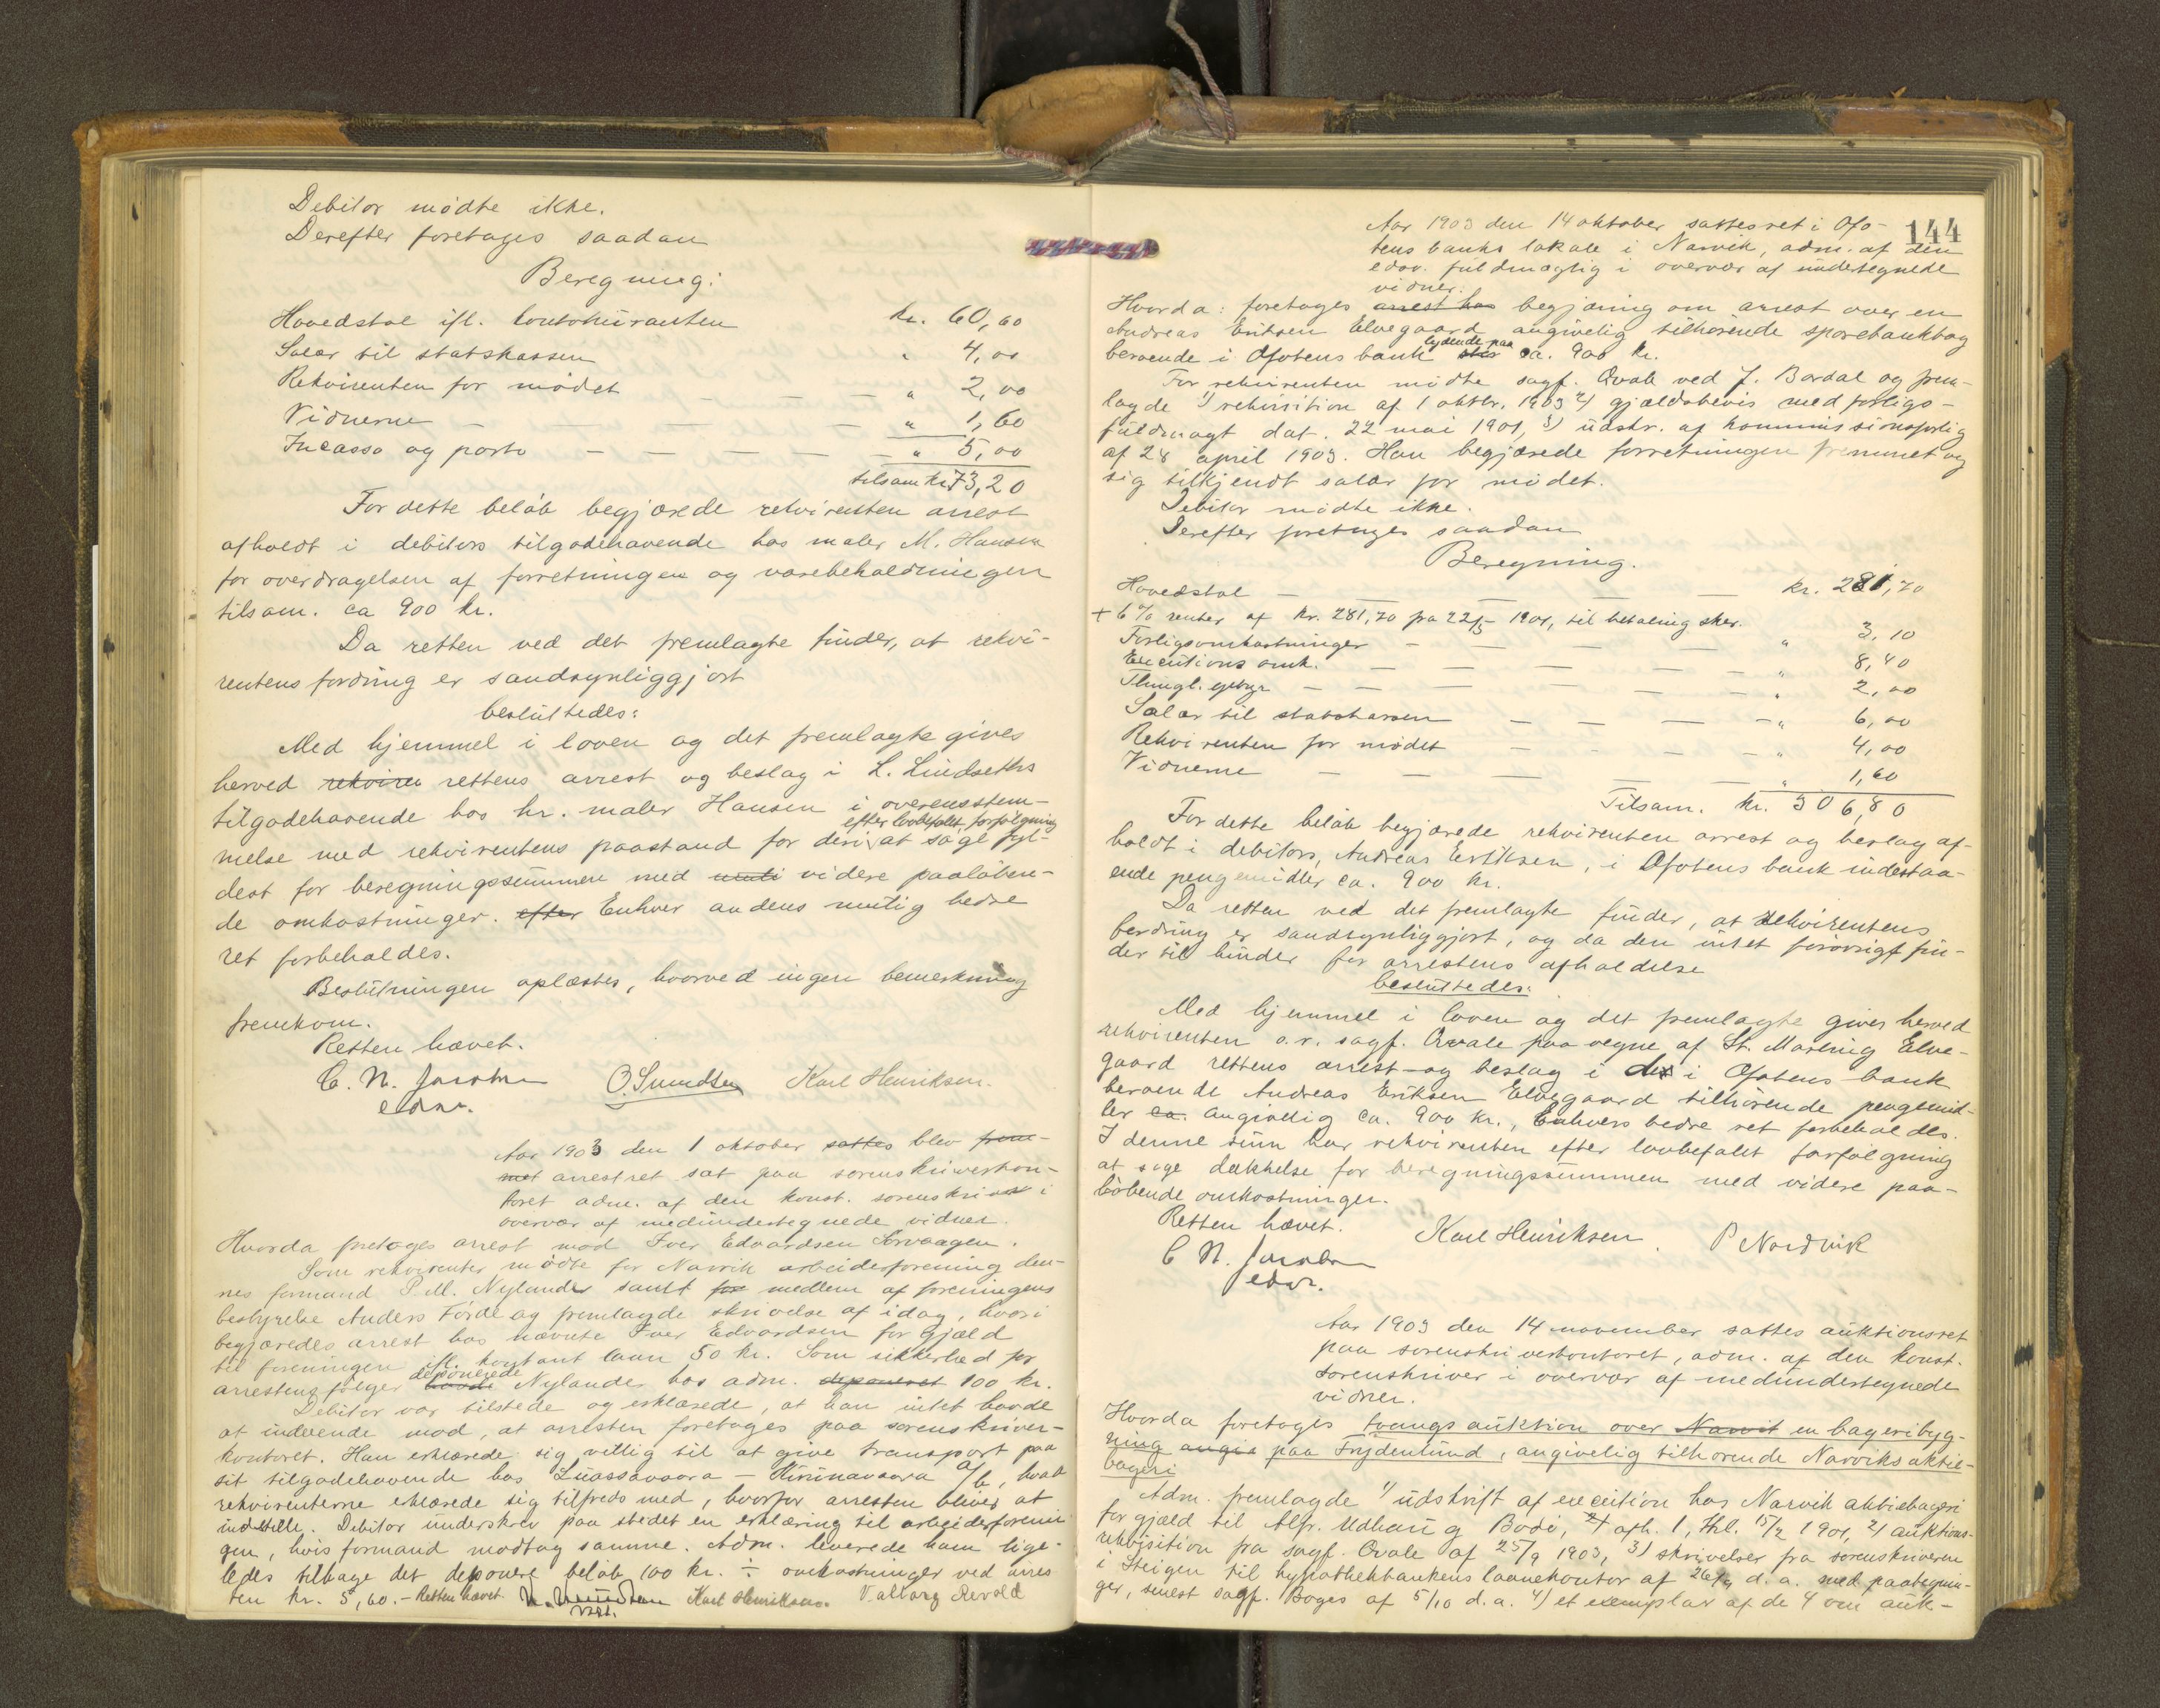 Debitor mødte ikke.
Derefter foretages saadan
Beregning:
Hovedstol ifl. contokuranten kr. 60,60
Salær til statskassen " 4,00
Rekvirenten for mødet — — — " 2,00
Vidnerne — — — — — " 1,60
Incasso og porto — — — — — " 5,00
tilsam kr. 73,20
For dette beløb begjærede rekvirenten arrest
afholdt i debitors tilgodehavende hos maler M. Hansen
for overdragelsen af forretningen og varebeholdningen
tilsam. ca 900 kr.
Da retten ved det fremlagte finder, at rekvi-
rentens fordring er sandsynliggjort
besluttedes:
Med hjemmel i loven og det fremlagte gives
herved rekviren rettens arrest og beslag i L. Lindseths
tilgodehavende hos hr. maler Hansen i overensstem-
melse med rekvirentens paastand for deri efter lovbefalet forfølgning at søge fyl-
dest for beregningssummen med videre paaløben-
de omkostninger. efter Enhver andens mulig bedre
ret forbeholdes.
Beslutningen oplæstes, hvorved ingen bemerkning
fremkom.
Retten hævet.
C. N. Jacobsen O. Smedsen Karl Henriksen.
edsv.
Aar 1903 den 1 oktober sattes blev frem-
met arrestret sat paa sorenskriverkon-
toret adm. af den konst. sorenskriver i
overvær af medundertegnede vidner.
Hvorda foretages arrest mod Iver Edvardsen Sørvaagen.
Som rekvirenter mødte for Narvik arbeiderforening den-
nes formand P. M. Nylander samt for medlem af foreningens
bestyrelse Anders Førde og fremlagde skrivelse af idag, hvori
begjæredes arrest hos nævnte Iver Edvardsen for gjæld
til foreningen ifl. kontant laan 50 kr. Som sikkerhed for
arrestens følger havde deponerede Nylander hos adm. deponeret 100 kr.
Debitor var tilstede og erklærede, at han intet havde
at indvende mod, at arresten foretages paa sorenskriver-
kontoret. Han erklærede sig villig til at give transport paa
sit tilgodehavende hos Luossavaara - Kiirunavaara a/b, hvad
rekvirenterne erklærede sig tilfreds med, hvorfor arresten bliver at
indstille. Debitor underskrev paa stedet en erklæring til arbeiderforenin-
gen, hvis formand modtog samme. Adm. leverede ham lige-
ledes tilbage det deponere beløb 100 kr. ÷ omkostninger ved arres-
ten kr. 5,60. - Retten hævet. Karl Henriksen. Valborg Revold
144
Aar 1903 den 14 oktober sattes ret i Ofo-
tens banks lokale i Narvik, adm. af den
edsv. fuldmægtig i overvær af undertegnede
vidner.
Hvorda: foretages arrest hos begjæring om arrest over en
Andreas Eriksen Elvegaard angivelig tilhørende sparebankbog
beroende i Ofotens bank lydende paa ca. 900 kr.
For rekvirenten mødte sagf. Qvale ved J. Bardal og frem-
lagde 1) rekvisition af 1 oktbr. 1903 2) gjældsbevis med forligs-
fuldmagt dat. 22 mai 1901, 3) udskr. af kommissionsforlig
af 28 april 1903. Han begjærede forretningen fremmet og
sig tilkjendt salær for mødet.
Debitor mødte ikke.
Derefter foretages saadan
Beregning.
Hovedstol — — — — kr. 281,70
+ 6 % renter af kr. 281,70 fra 22/5 1901, til betaling sker.
Forligsomkostninger — — — — " 3,10
Executions omk. — — — — " 8,40
Thingl. gebyr — — — — " 2,00
Salær til statskassen — — — " 6,00
Rekvirenten for mødet — — — " 4,00
Vidnerne — — — — " 1,60
Tilsam. kr. 306,80
For dette beløb begjærede rekvirenten arrest og beslag af-
holdt i debitors, Andreas Eriksen, i Ofotens bank indestaa-
ende pengemidler ca. 900 kr.
Da retten ved det fremlagte finder, at rekvirentens
fordring er sandsynliggjort, og da den intet forøvrigt fin-
der til hinder for arrestens afholdelse
besluttedes:
Med hjemmel i loven og det fremlagte gives herved
rekvirenten o.r. sagf. Qvale paa vegne af St. Mareng Elve-
gaard rettens arrest og beslag i de i Ofotens bank
beroende Andreas Eriksen Elvegaard tilhørende pengemid-
ler ca. angivelig ca. 900 kr., Enhvers bedre ret forbeholdes.
I denne sum har rekvirenten efter lovbefalet forfølgning
at søge dækkelse for beregningssummen med videre paa-
løbende omkostninger.
Retten hævet. Karl Henriksen. P Nordvik
C N. Jacobsen
edsv.
Aar 1903 den 14 november sattes auktionsret
paa sorenskriverkontoret, adm. af den konst.
sorenskriver i overvær af medundertegnede
vidner.
Hvorda foretages tvangsauktion over Narvik en bageribyg-
ning angiv paa Frydenlund, angivelig tilhørende Narviks aktie-
bageri
Adm. fremlagde 1) udskrift af execution hos Narvik aktiebageri
for gjæld til Alfr. Udhaug Bodø, 2) afh. 1, thl. 15/2 1901, 2) auktions-
rekvisition fra sagf. Qvale af 25/9 1903, 3) skrivelser fra sorenskriveren
i Steigen til hypothekbankens laanekontor af 26/9 d. a. med paategnin-
ger, senest sagf. Boges af 5/10 d. a. 4) et exemplar af de 4 om auk-